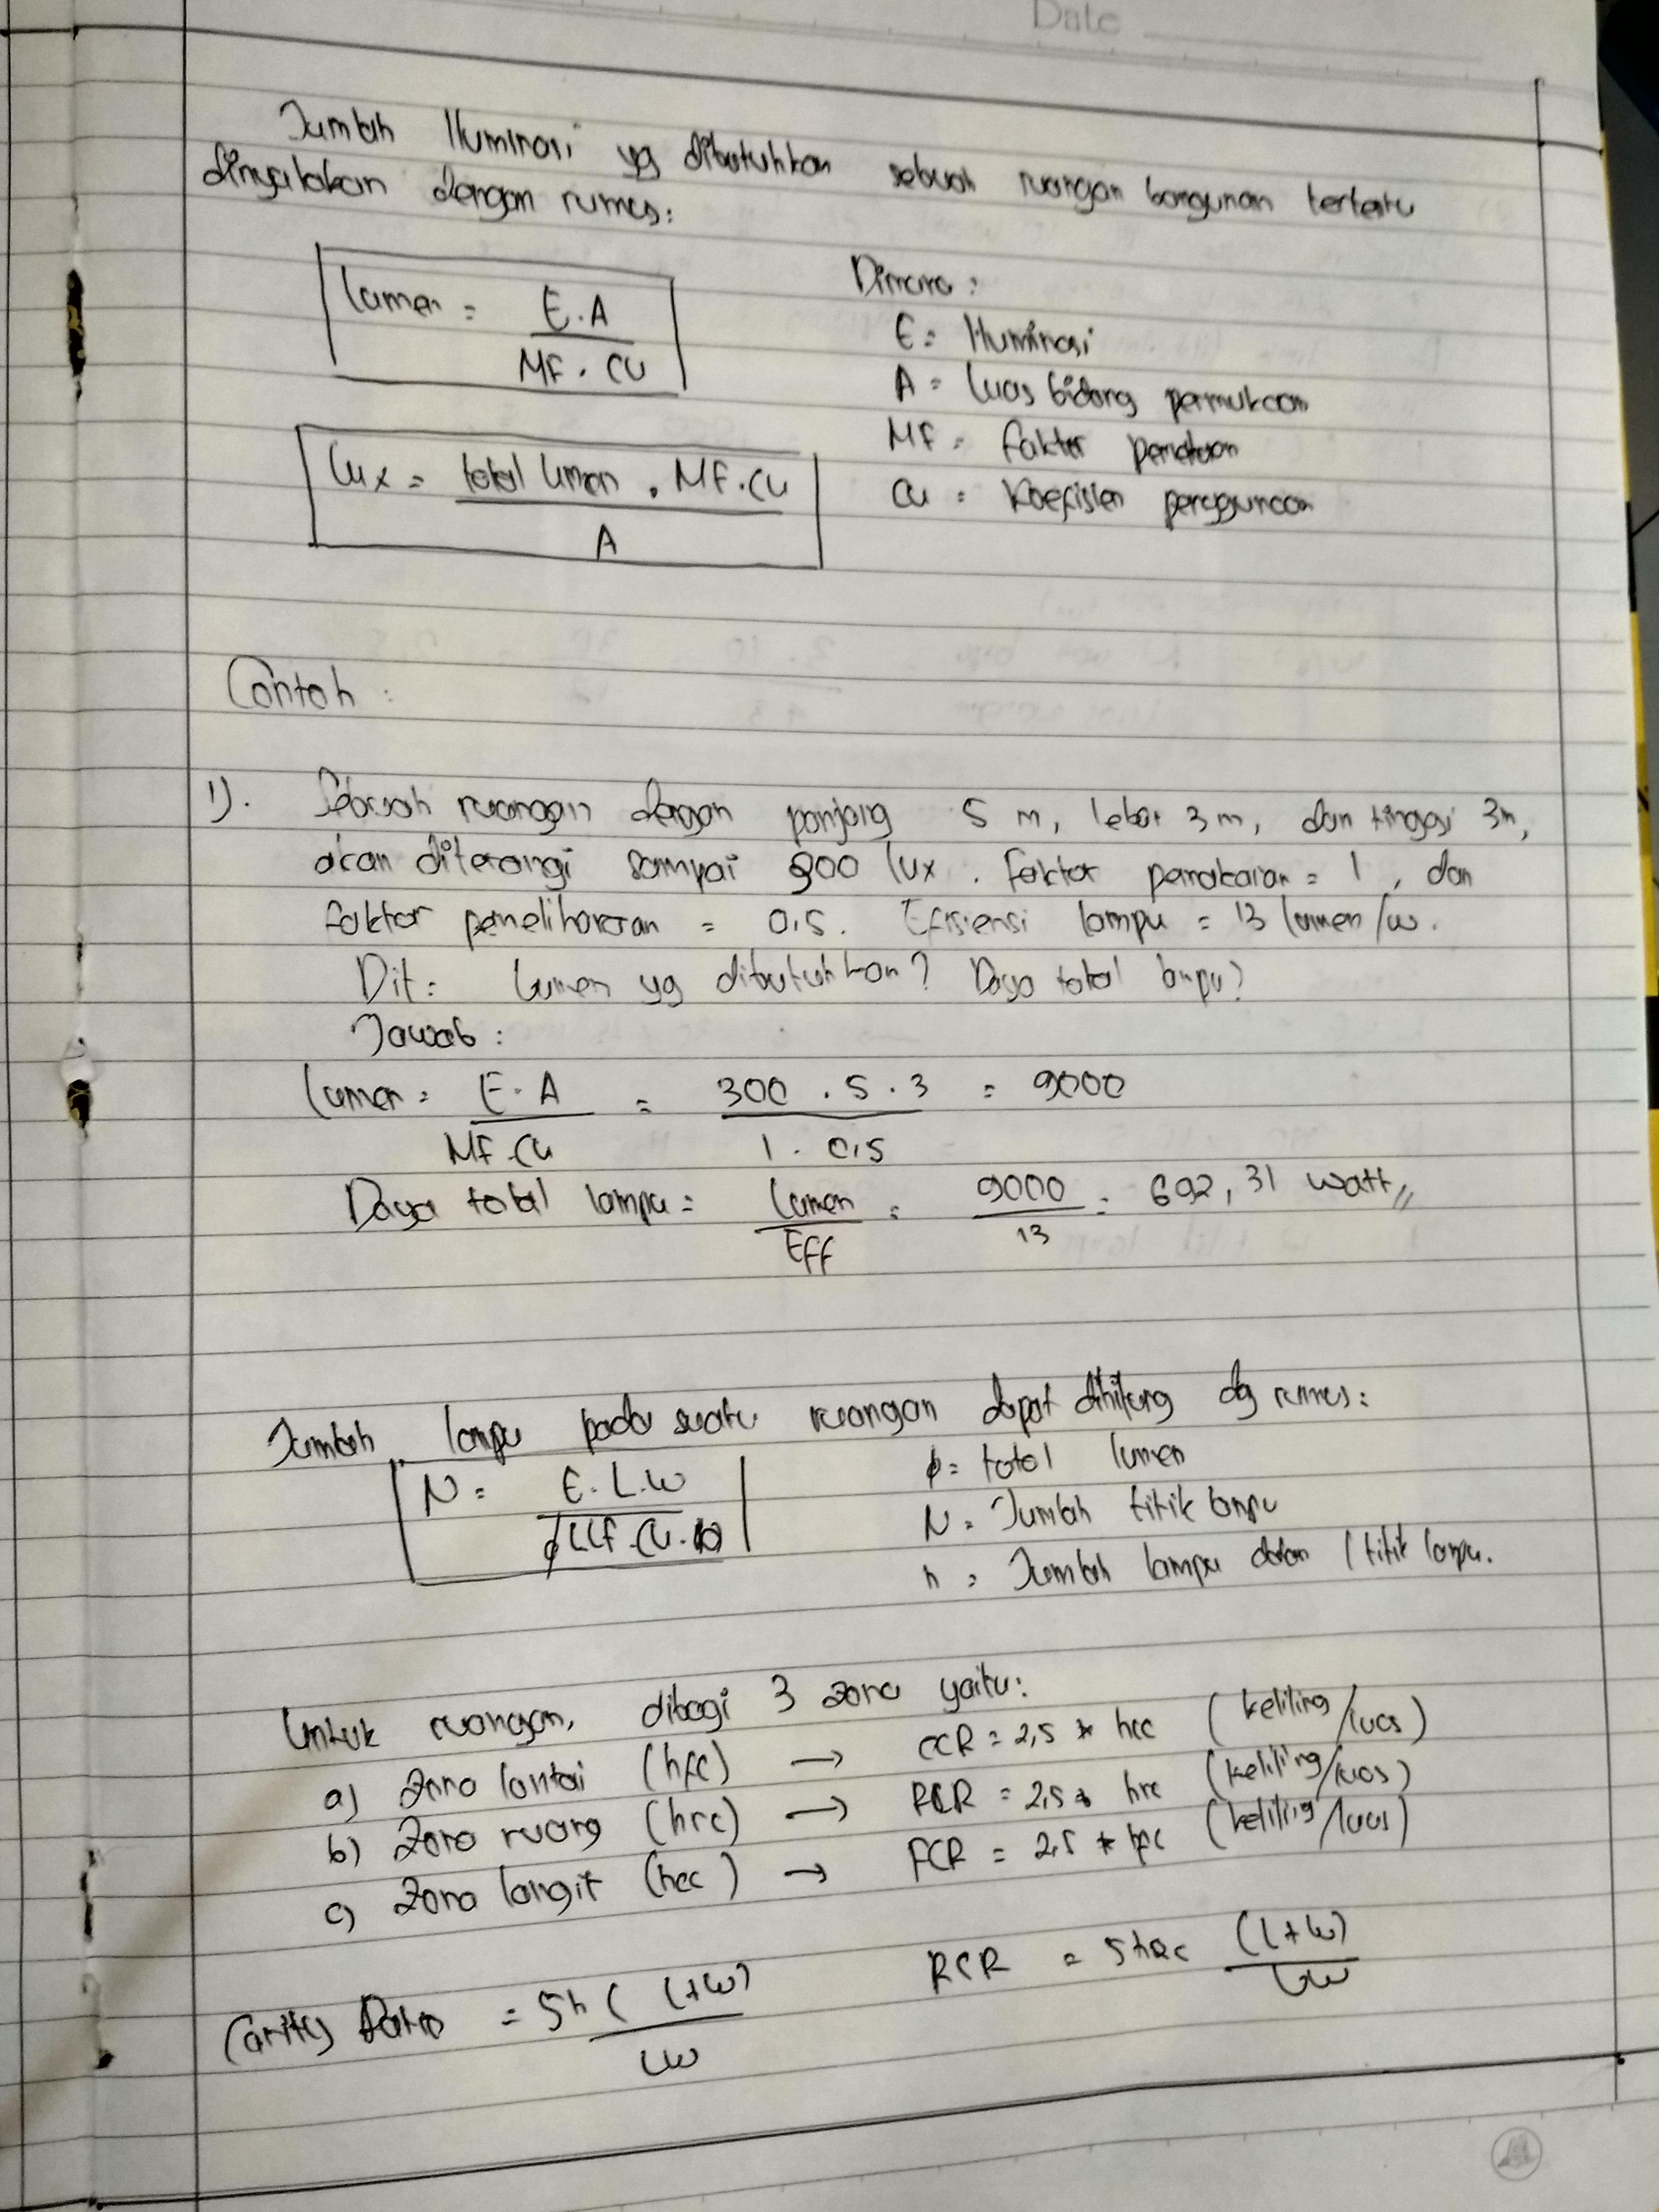 Date
Jumlah Iluminasi yg dibutuhkan sebuah ruangan bangunan tertentu
dinyatakan dengan rumus:
Lumen = E.A / MF . CU
Lux = total lumen . MF.CU / A
Dimana :
E = Iluminasi
A = Luas bidang permukaan
MF = faktor
CU = Koefisien penggunaan
Contoh :
1). Sebuah ruangan dengan panjang 5 m, lebar 3m, dan tinggi 3m,
akan diterangi sampai 300 lux . faktor pemakaian = 1 , dan
faktor pemeliharaan = 0,5. Efisiensi lampu = 13 lumen/w.
Dit : Lumen yg dibutuhkan? Daya total lampu?
Jawab :
Lumen = E.A / MF.CU = 300 . 5 . 3 / 1 . 0,5 = 9000
Daya total lampu = Lumen / Eff = 9000 / 13 = 692,31 watt //
Jumlah lampu pada suatu ruangan dapat dihitung dg rumus :
N = E.L.W / ϕ LLF.CU.n
ϕ = total lumen
N = Jumlah titik lampu
n = Jumlah lampu dalam 1 titik lampu.
Untuk ruangan, dibagi 3 zona yaitu:
a) Zona lantai (hfc) → CCR = 2,5 * hcc (keliling/luas)
b) Zona ruang (hrc) → RCR = 2,5 * hrc (keliling/luas)
c) Zona langit (hcc) → FCR = 2,5 * hfc (keliling/luas)
Cavity Ratio = 5h (L+W) / LW
RCR = 5hRc (L+W) / LW